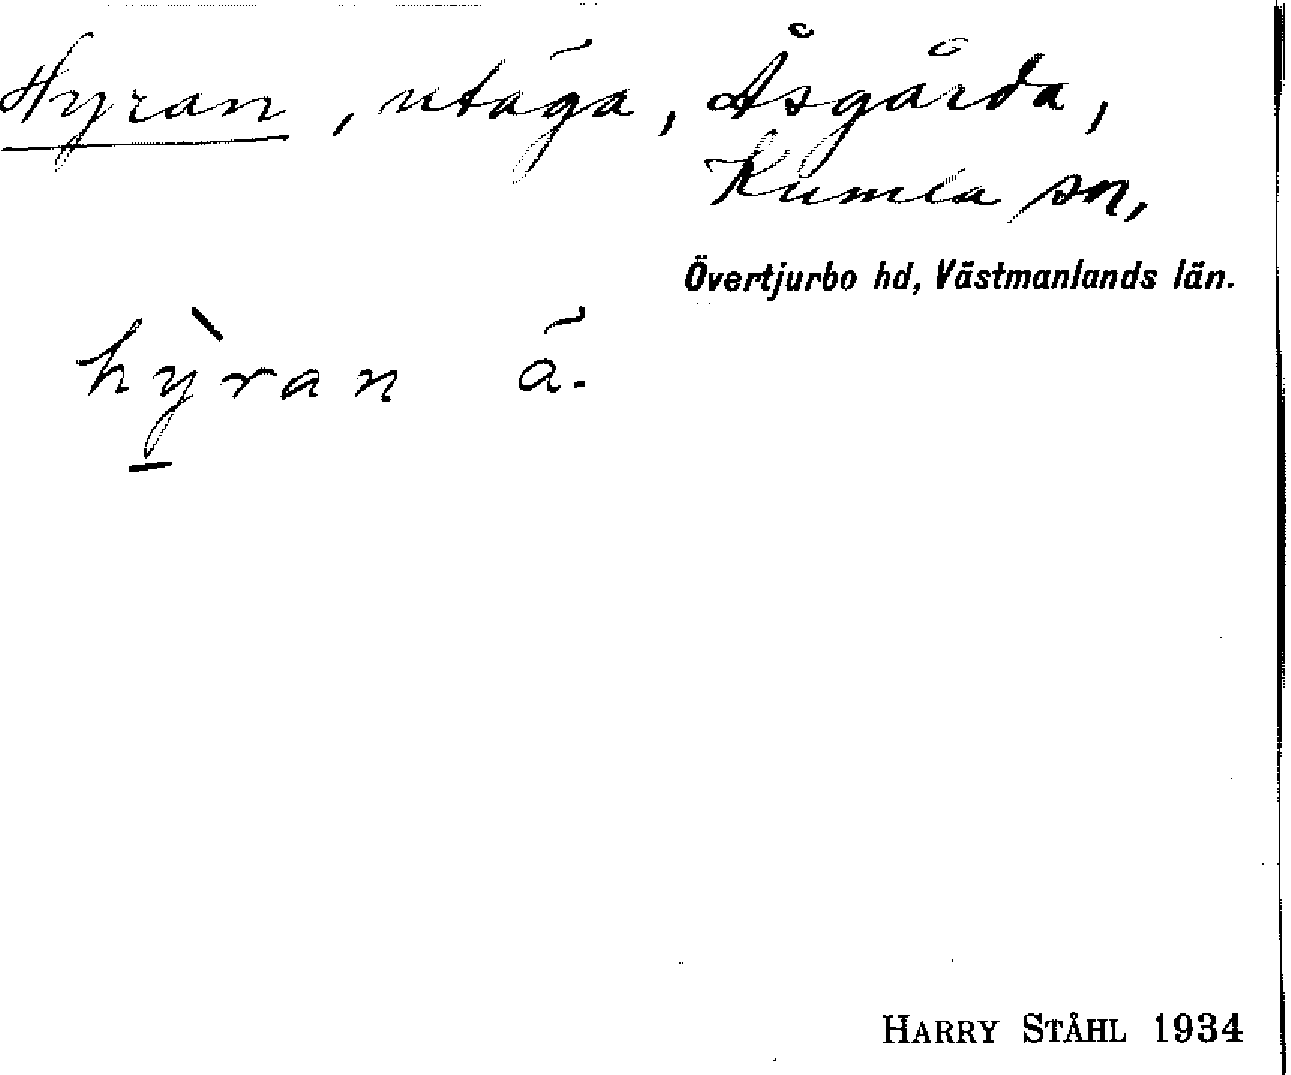 Hyran, utäga, Åsgårda,
Kumla sn,
Övertjurbo hd, Västmanlands län.
hỳran ä.
HARRY STÅHL 1934